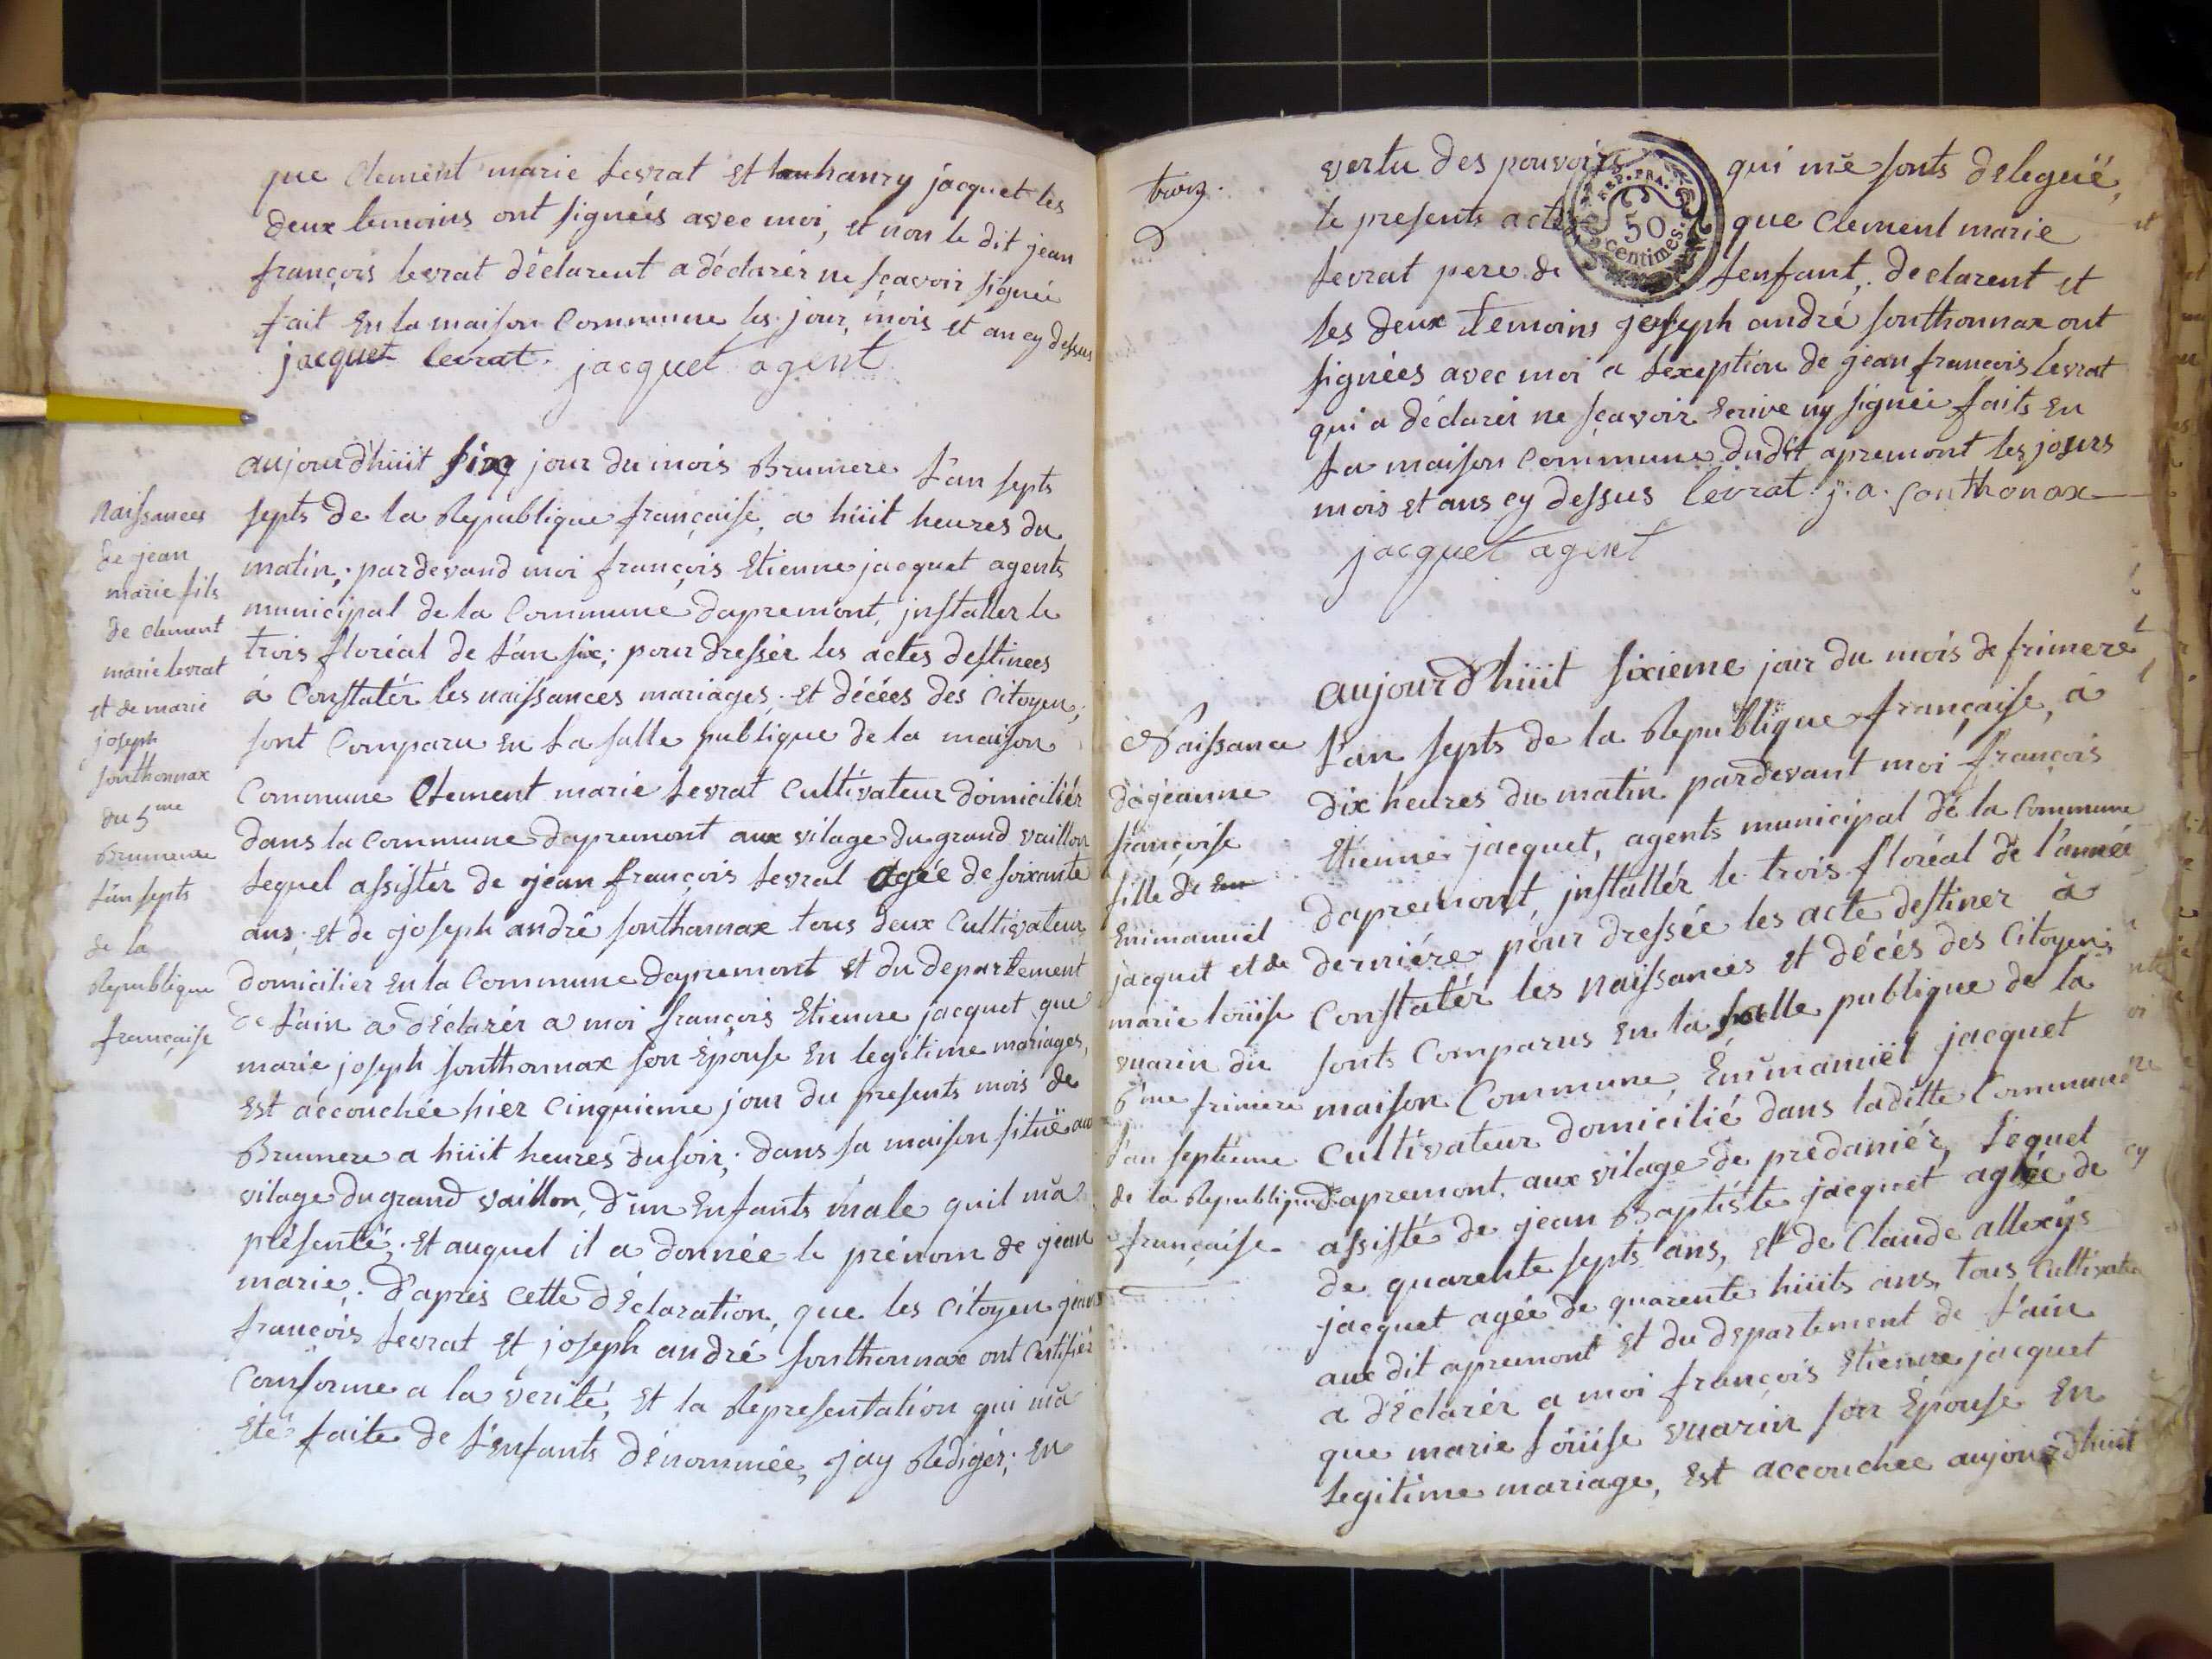 que Clement marie Levrat et hanry jacquet les
deux temoins ont signées avec moi, et non le dit jean
françois levrat déclarent a déclarér ne sçavoir signée
fait En la maison Commune les jour, mois et an cy dessus
jacquet levrat. jacquet agent
Naissances
de jean
marie fils
de clement
marie levrat
et de marie
joseph
sonthonnax
du 5me
Brumere
l'an septs
de la
Republique
française
aujourd'huit six jour du mois Brumere L'an septs
septs de la Republique française, a hüit heures du
matin; pardevand moi françois Etienne jacquet agents
municipal de la Commune dapremont, jnstaller le
trois floréal de L'an six; pour dressér les actes destinees
á Constatér les naissances mariages, et décées des Citoyen;
sont Comparu en La salle publique de la maison
Commune Clement marie Levrat Cultivateur domiciliér
dans la Commune dapremont aux vilage du grand vaillon
Lequel assistér de jean françois Levrat Agée de soixante
ans; et de joseph andré sonthonnax tous deux Cultivateur
domicilier En la Commune dapremont et du departement
de L'ain a déclarér a moi françois Etienne jacquet que
marie joseph sonthonnax son Épouse En legitime mariages,
Est accouchée hier Cinquieme jour du presents mois de
Brumere a hüit heures du soir; dans sa maison sitüé aux
vilage du grand vaillon, d'un Enfants male quil m'a
présenté; Et auquel il a donnée le prénom de jean
marie; D'aprés Cette dÉclaration, que les Citoyen jean
françois Levrat Et joseph andré sonthonnax ont Certifiér
Conforme a la vérité, Et la Représentation qui m'a
Eté faite de L'Enfants dénommée, jay Redigér; En
trois
vertu des pouvoirs qui me sonts delegüé,
le presents acte que Clement marie
Levrat pere de Lenfant, declarent et
les deux temoins joseph andré sonthonnax ont
signées avec moi a Lexeption de jean françois levrat
qui a déclarér ne sçavoir Ecrire ny signée faits En
La maison Commune dudit apremont les jours
mois et ans cy dessus levrat. j. a. sonthonax
jacquet agent
REP. FRA.
50
centimes.
Naissance
de jeanne
françoise
fille de Em
Emmanuël
jacquet et de
marie loüise
vuarin du
6me frimere
L'an septieme
de la Republique
française.
aujourd'hüit sixieme jour du mois de frimere
L'an septs de la Republique française, á
dix heures du matin pardevant moi françois
Etienne jacquet, agents municipal de la Commune
dapremont, jnstallér le trois floréal de l'année
derniére pour dressée les acte destiner á
Constatér les naissances et décés des Citoyen;
sonts Comparus En la salle publique de la
maison Commune, Emmanuël jacquet
Cultivateur domicilié dans ladite Commune
dapremont, aux vilage de prédaniér, Lequel
assisté de jean Baptiste jacquet agée de
de quarente septs ans, et de Claude allexÿs
jacquet agée de quarente hüits ans, tous Cultivateu
aux dit apremont Et du departement de L'ain
a dÉclarér a moi françois Etienne jacquet
que marie Loüise vuarin son Épouse En
Legitime mariage, Est accouchee aujourd'hüit